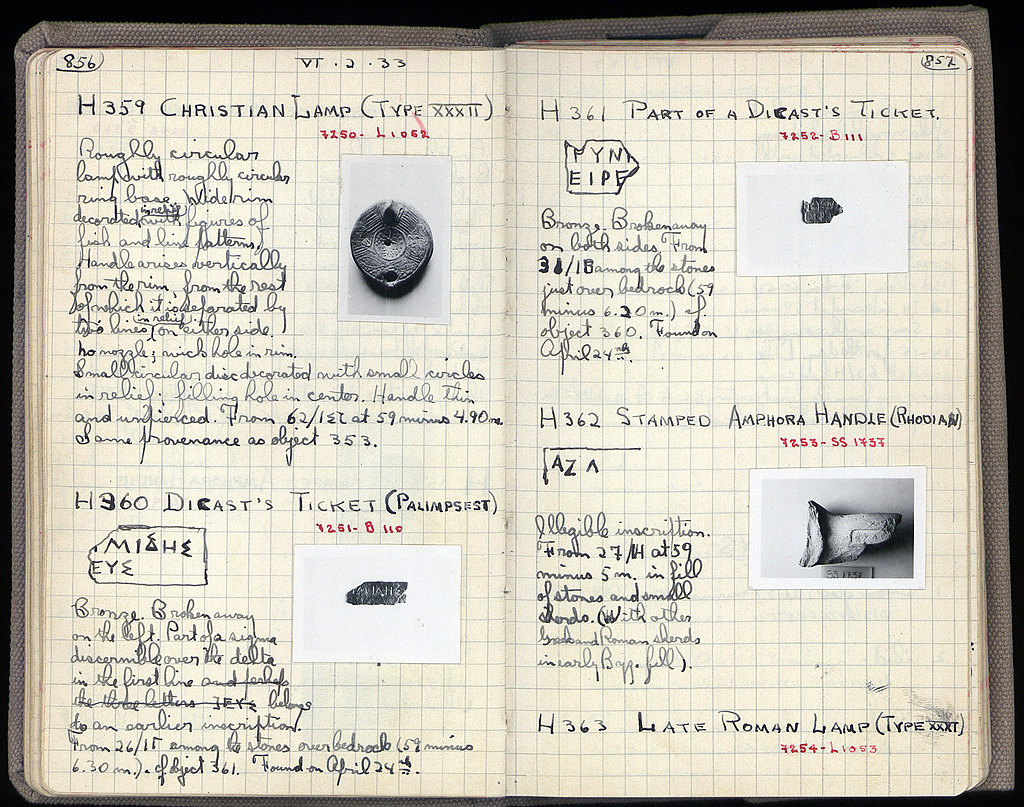 856
VI · 2 · 33
H 359 CHRISTIAN LAMP (TYPE XXXII)
7250 - L 1052
Roughly circular
lamp with roughly circular
ring base. Wide rim
decorated in relief with figures of
fish and line patterns.
Handle arises vertically
from the rim, from the rest
of which it is separated by
two lines in relief on either side.
no nozzle; wick hole in rim.
Small circular disc decorated with small circles
in relief; filling hole in center. Handle thin
and unpierced. From 62/ at 59 minus 4.90 m.
Same provenance as object 353.
H 360 DICAST'S TICKET (PALIMPSEST)
7251 - B 110
ΜΙΔΗΣ
ΕΥΣ
Bronze. Broken away
on the left. Part of a sigma
discernible over the delta
in the first line and perhaps
the three letters ΙΕΥΣ belongs
to an earlier inscription.
From 26/ΙΓ among the stones over bedrock (59 minus
6.30 m.). cf object 361. Found on April 24th.
857
H 361 PART OF A DICAST'S TICKET.
7252 - B 111
ΥΝ
ΕΙΡΕ
Bronze. Broken away
on both sides. From
31/ among the stones
just over bedrock (59
minus 6.20 m.) cf.
object 360. Found on
April 24th.
H 362 STAMPED AMPHORA HANDLE (RHODIAN)
7253 - SS 1737
ΑΖ Λ
SS 1737
Illegible inscription.
From 27/Η at 59
minus 5 m. in fill
of stones and small
sherds. (With other
Greek and Roman sherds
in early Byz. fill).
H 363 LATE ROMAN LAMP (TYPE XXXI)
7254 - L 1053